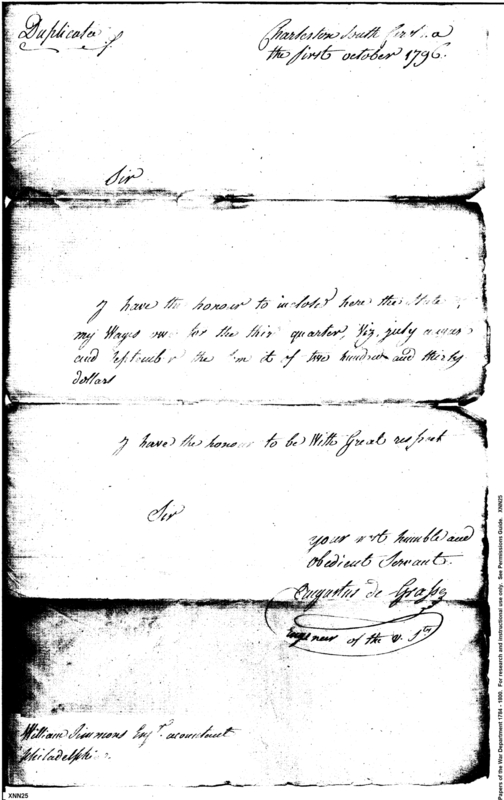 Duplicate
Charleston South
the first october 1796.
Sir
I have the honour to inclosed here the State of
my Wages for the third quarter, Viz, july
and September the of two hundred and thirty
dollars
I have the honour to be With Great respect
Sir
your most humble and
obedient Servant.
Augustus de Grasse
Engeneer of the U. Sts
William Simmons Esqr. acountent
philadelphia.
Papers of the War Department 1784 - 1800. For research and instructional use only. See Permissions Guide. XNN25
XNN25